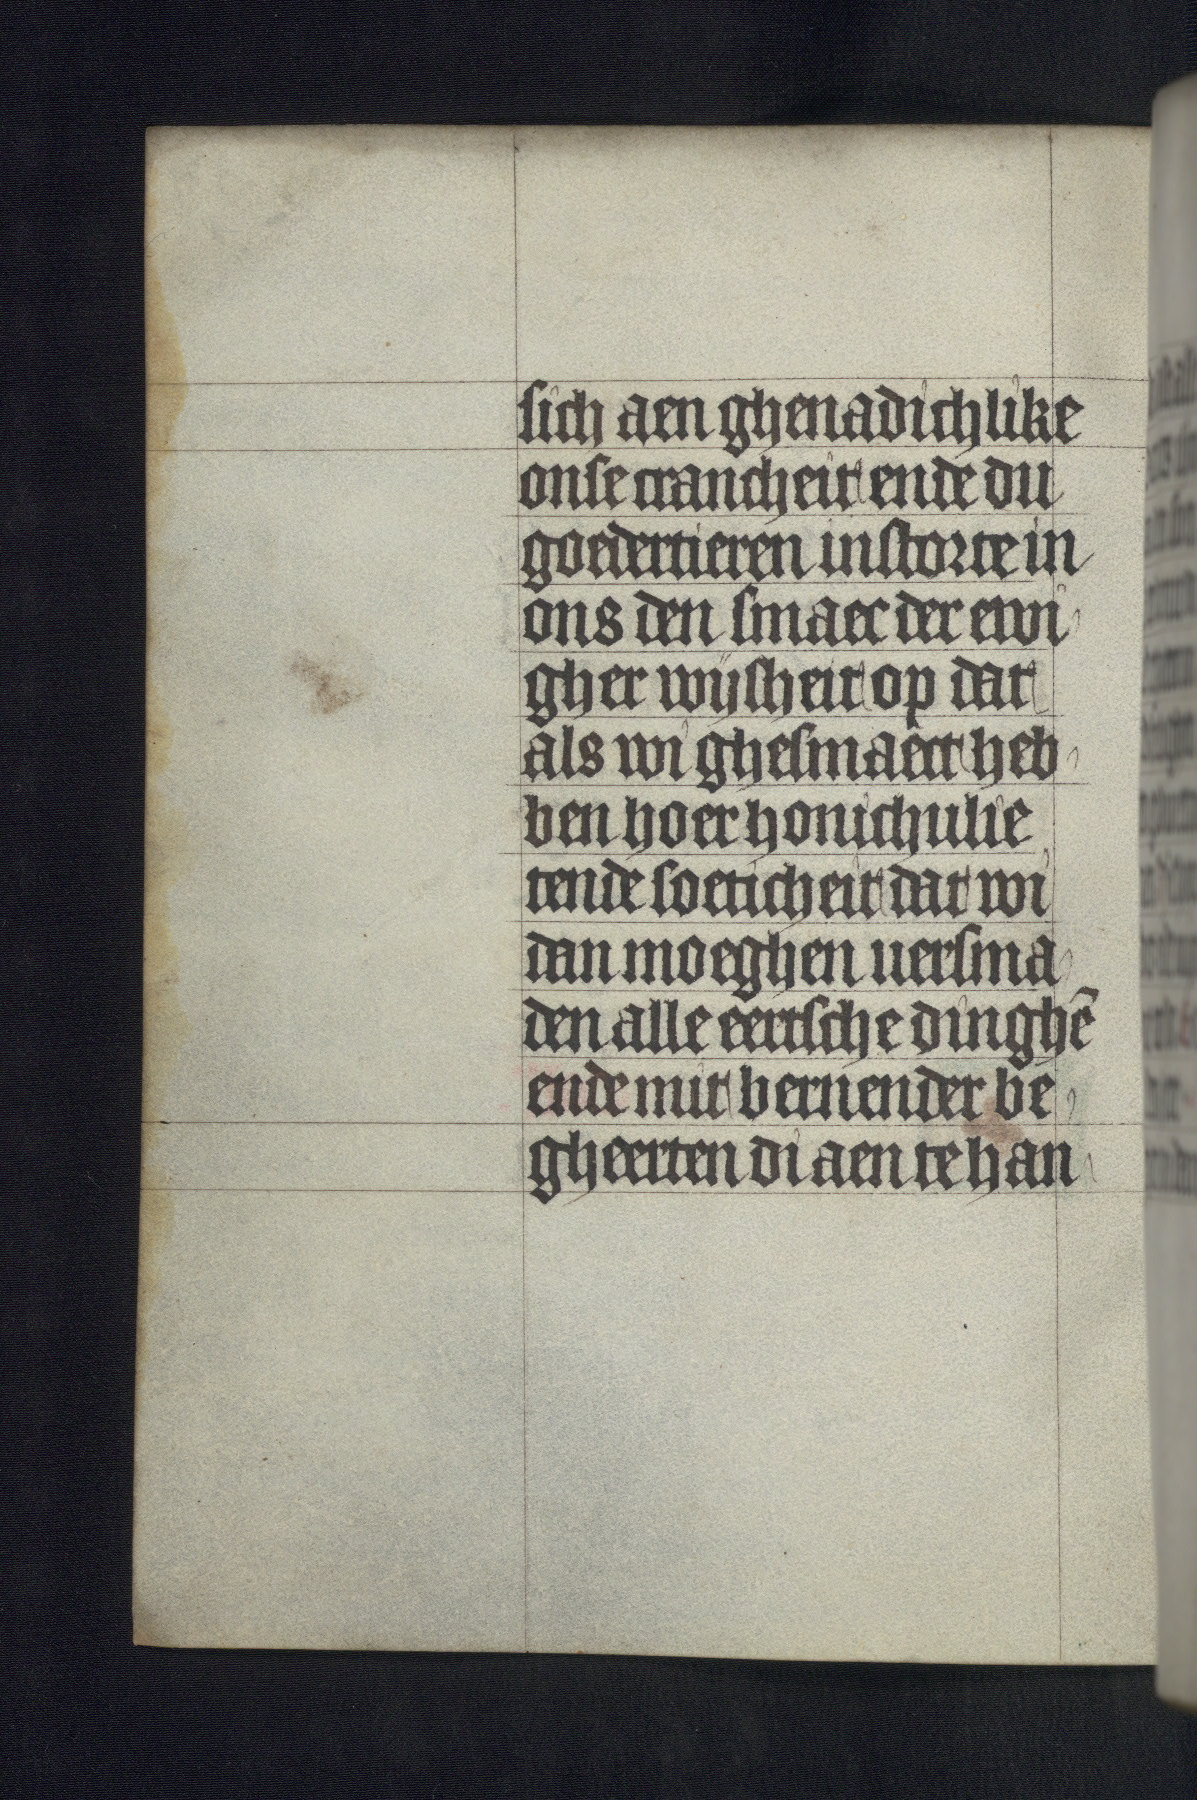 sich aen ghenadichlike
onse crancheit ende du
goedertieren instorte in
ons den smaec der ewi
gher wijsheit op dat
als wi ghesmaect heb
ben hoer honichulie
tende soeticheit dat wi
dan moeghen uersma
den alle eertsche dinghē
ende mit bernender be
gheerten di aen te han